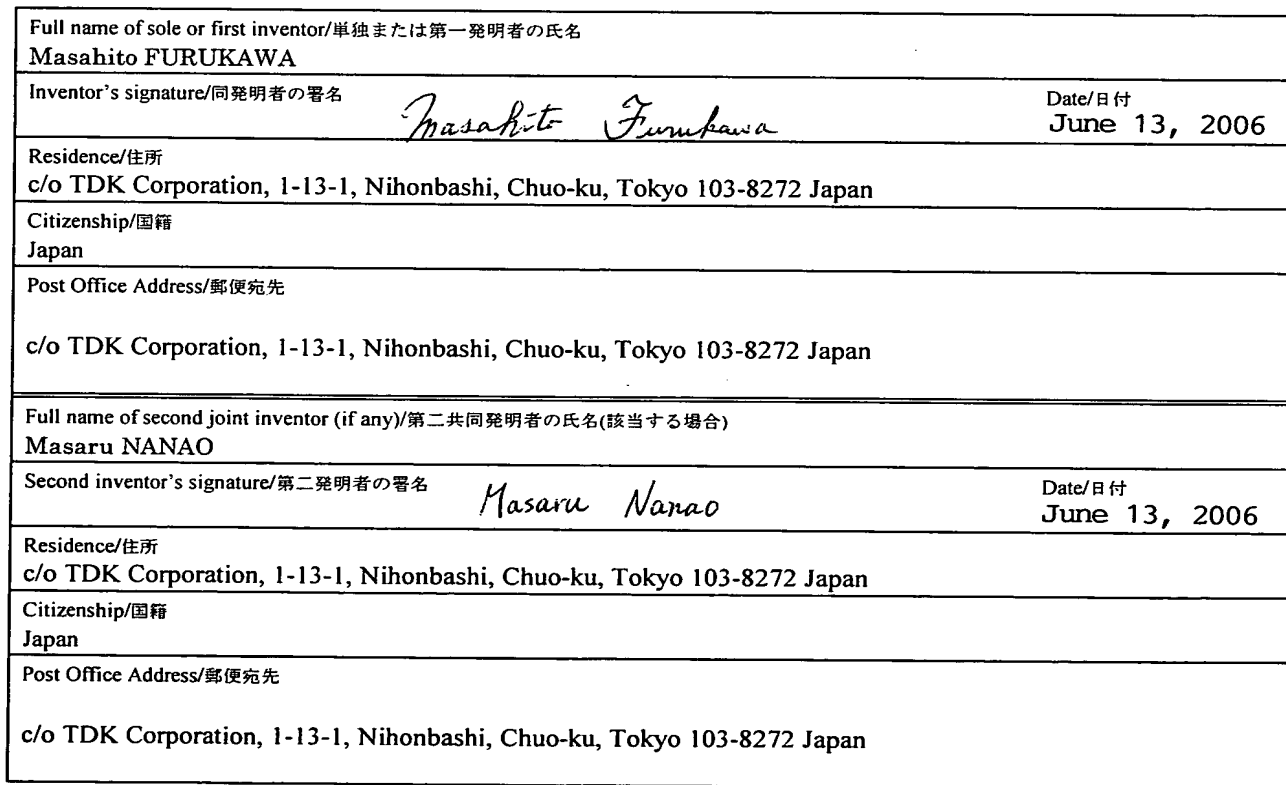 Full name of sole or first inventor/単独または第一発明者の氏名
Masahito FURUKAWA
Inventor's signature/同発明者の署名
Masahito Furukawa
Date/日付
June 13, 2006
Residence/住所
c/o TDK Corporation, 1-13-1, Nihonbashi, Chuo-ku, Tokyo 103-8272 Japan
Citizenship/国籍
Japan
Post Office Address/郵便宛先
c/o TDK Corporation, 1-13-1, Nihonbashi, Chuo-ku, Tokyo 103-8272 Japan
Full name of second joint inventor (if any)/第二共同発明者の氏名(該当する場合)
Masaru NANAO
Second inventor's signature/第二発明者の署名
Masaru Nanao
Date/日付
June 13, 2006
Residence/住所
c/o TDK Corporation, 1-13-1, Nihonbashi, Chuo-ku, Tokyo 103-8272 Japan
Citizenship/国籍
Japan
Post Office Address/郵便宛先
c/o TDK Corporation, 1-13-1, Nihonbashi, Chuo-ku, Tokyo 103-8272 Japan